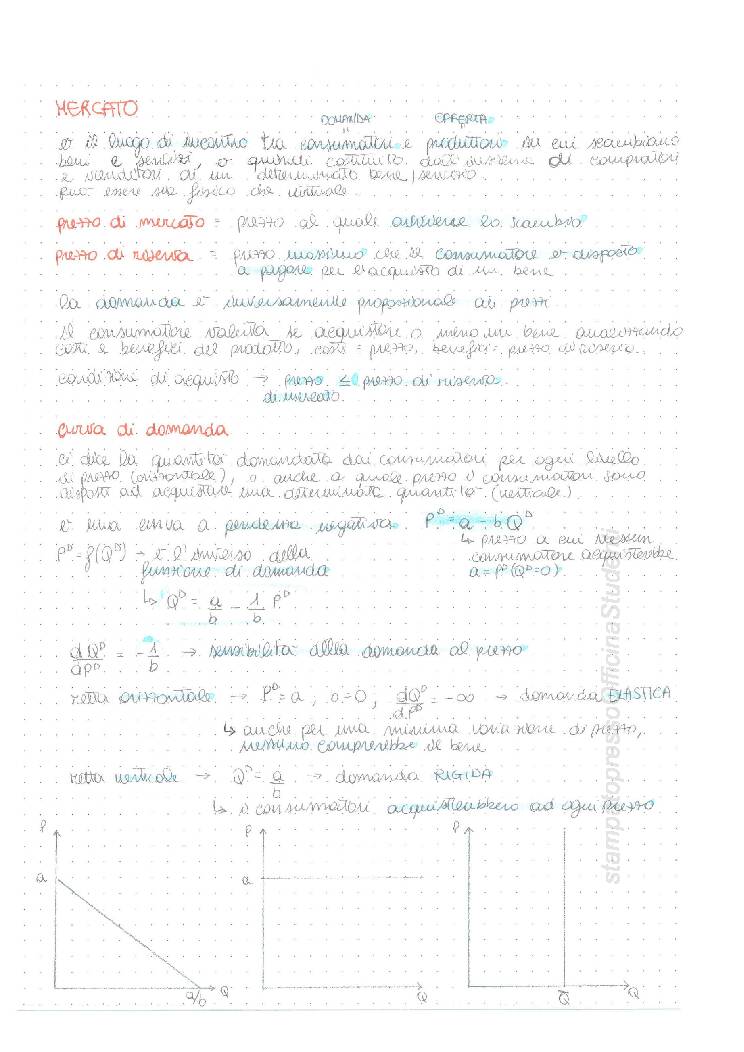 MERCATO
DOMANDA OFFERTA
è il luogo di incontro tra consumatori e produttori su cui scambiano
beni e servizi, o quindi costituito dall'insieme di compratori
e venditori di un determinato bene/servizio
può essere sia fisico che virtuale
prezzo di mercato = prezzo al quale avviene lo scambio
prezzo di riserva = prezzo massimo che il consumatore è disposto
a pagare per l'acquisto di un bene
la domanda è inversamente proporzionale ai prezzi
Il consumatore valuta se acquistare o meno un bene analizzando
costi e benefici del prodotto, costi = prezzo, benefici = prezzo di riserva
condizioni di acquisto → prezzo ≤ prezzo di riserva
di mercato
curva di domanda
ci dice la quantità domandata dai consumatori per ogni livello
di prezzo (orizzontale), o anche a quale prezzo i consumatori sono
disposti ad acquistare una determinata quantità (verticale)
è una curva a pendenza negativa P^D = a - bQ^D
↳ prezzo a cui nessun
P^D = f(Q^D) → è l'inverso della consumatore acquisterebbe
funzione di domanda a = P^D(Q^D=0)
↳ Q^D = a/b - 1/b P^D
dQ^D/dP^D = -1/b → sensibilità della domanda al prezzo
retta orizzontale → P^D = a, b=0, dQ^D/dP^D = -∞ → domanda ELASTICA
↳ anche per una minima variazione di prezzo,
nessuno comprerebbe il bene
retta verticale → Q^D = a/b → domanda RIGIDA
↳ i consumatori acquisterebbero ad ogni prezzo
P P P
a a
a/b Q Q Q̄ Q
stampatopressoofficinaStudenti